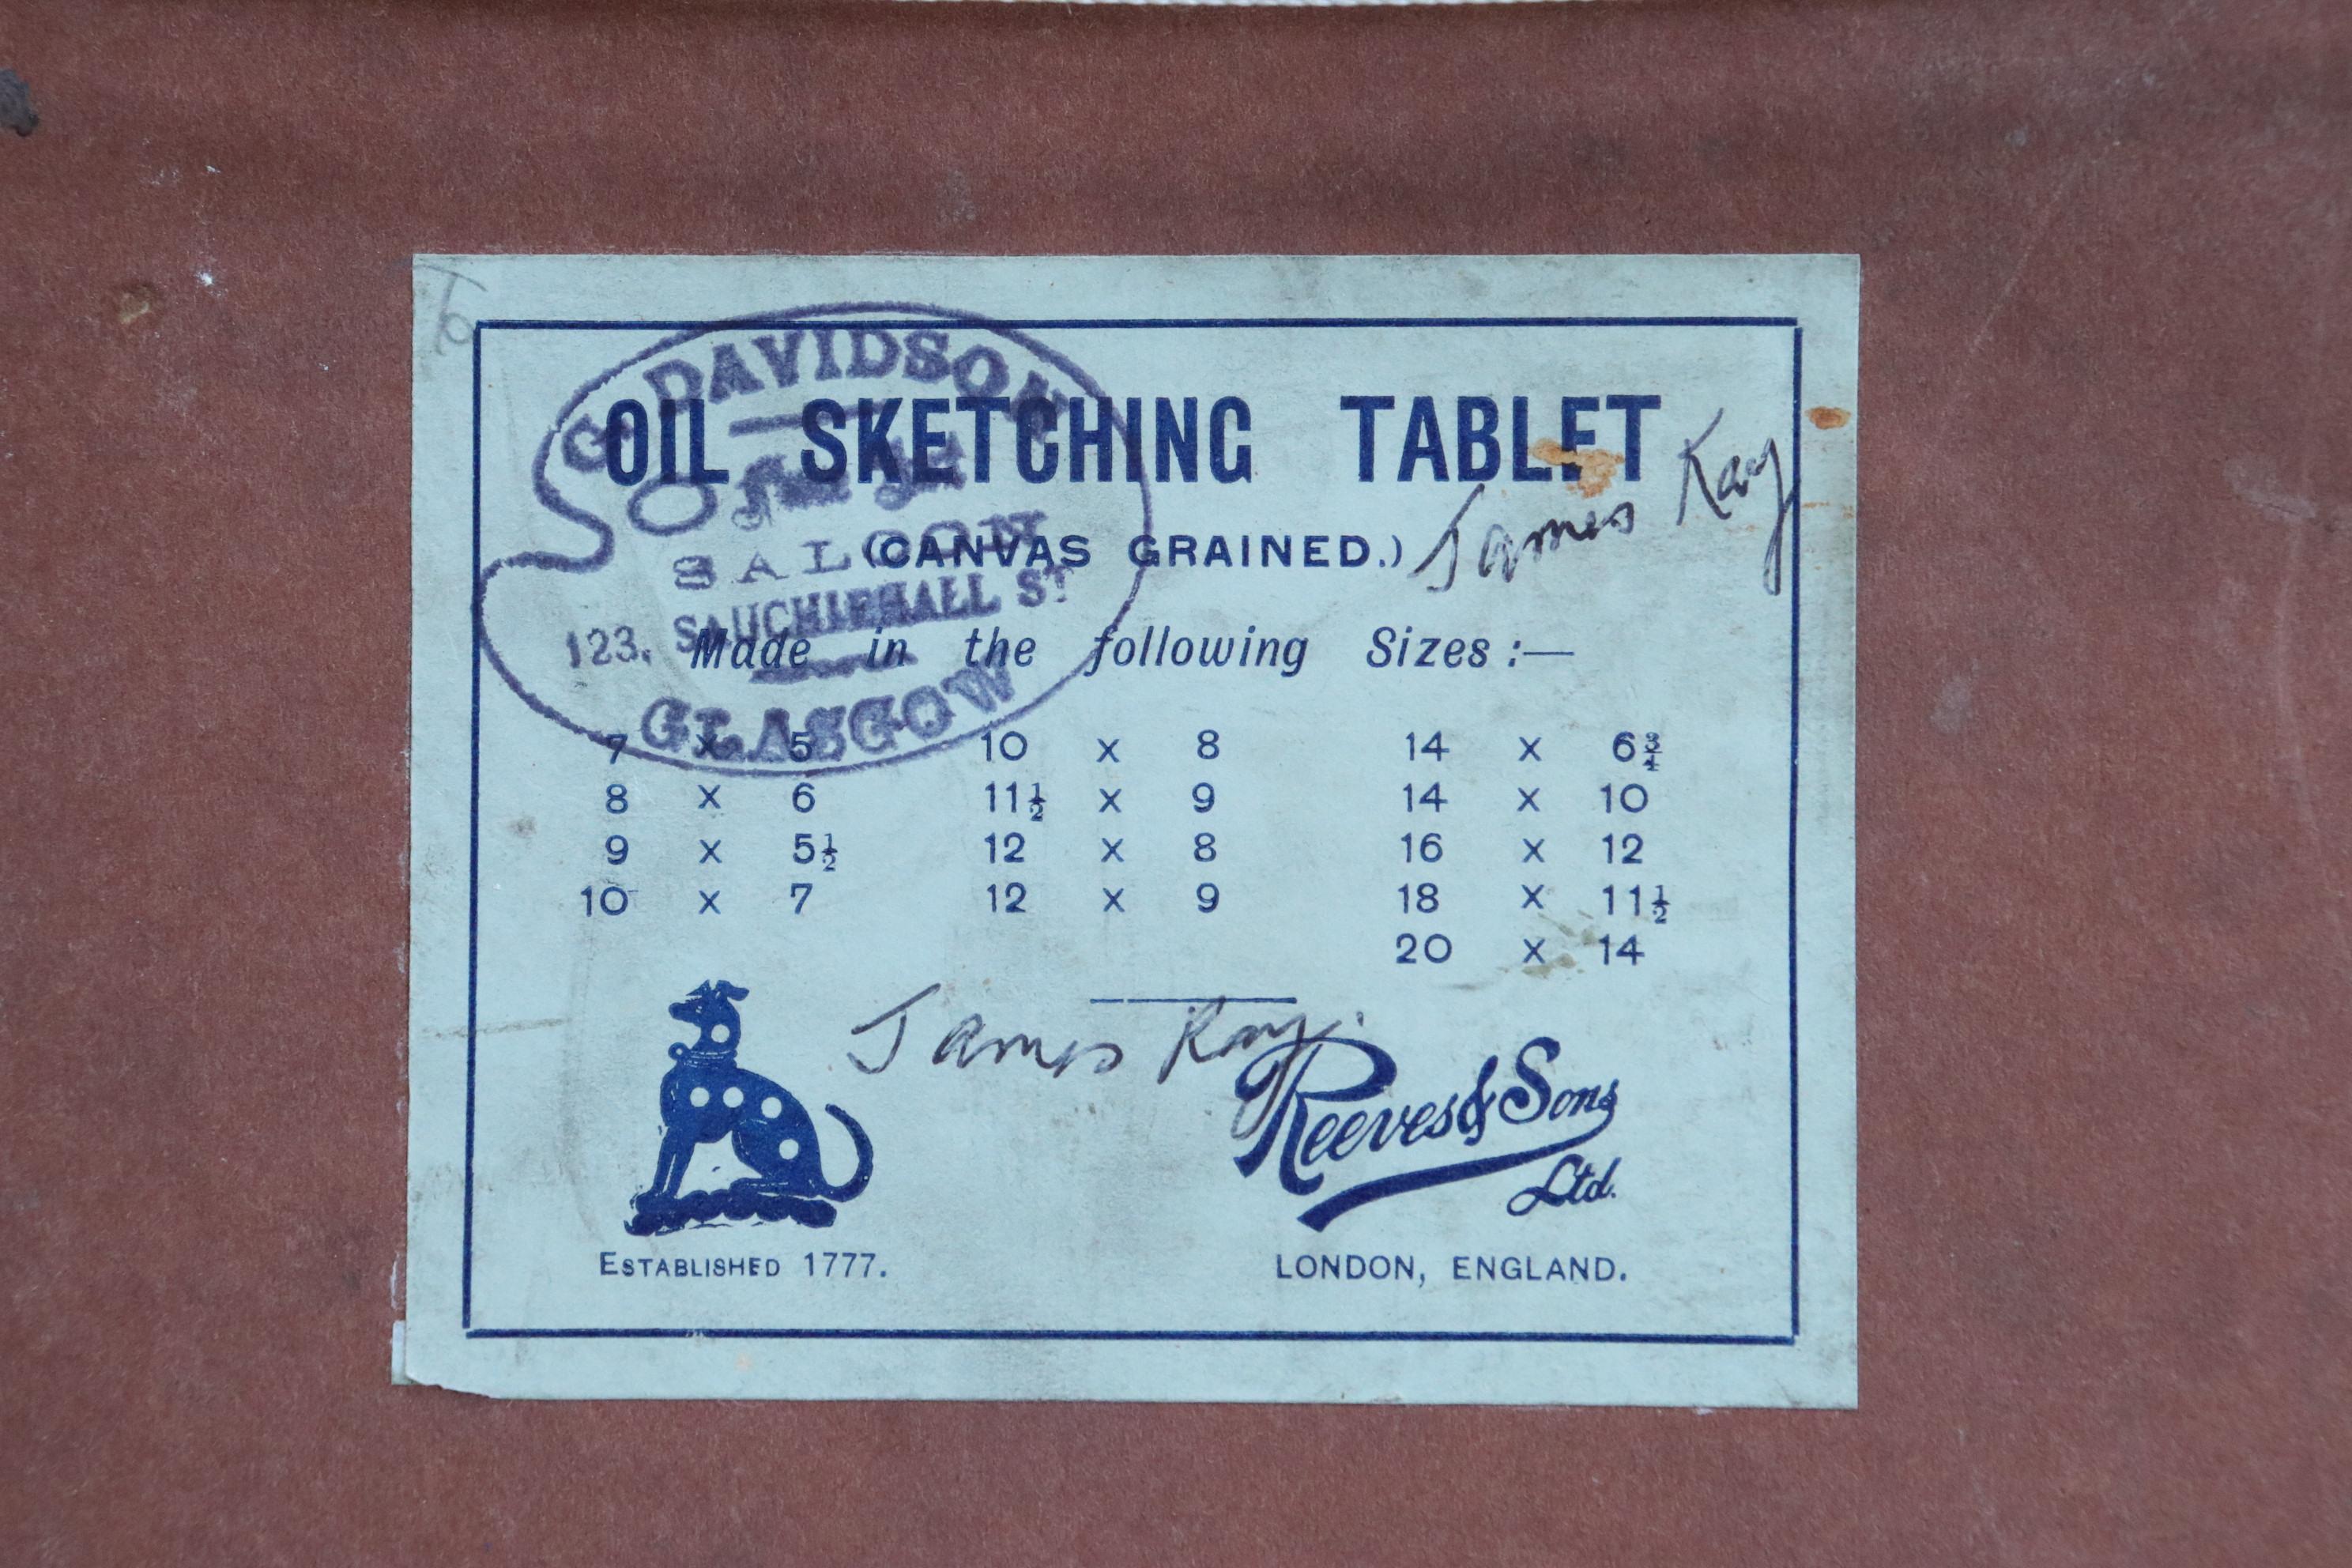 G. DAVIDSON
Fine Art
SALOON
123. SAUCHIEHALL ST
GLASGOW
OIL SKETCHING TABLET
(CANVAS GRAINED.)
James Kay
Made in the following Sizes :—
7 x 5 10 x 8 14 x 6¾
8 x 6 11½ x 9 14 x 10
9 x 5½ 12 x 8 16 x 12
10 x 7 12 x 9 18 x 11½
20 x 14
James Kay
Reeves & Sons
Ltd.
ESTABLISHED 1777. LONDON, ENGLAND.